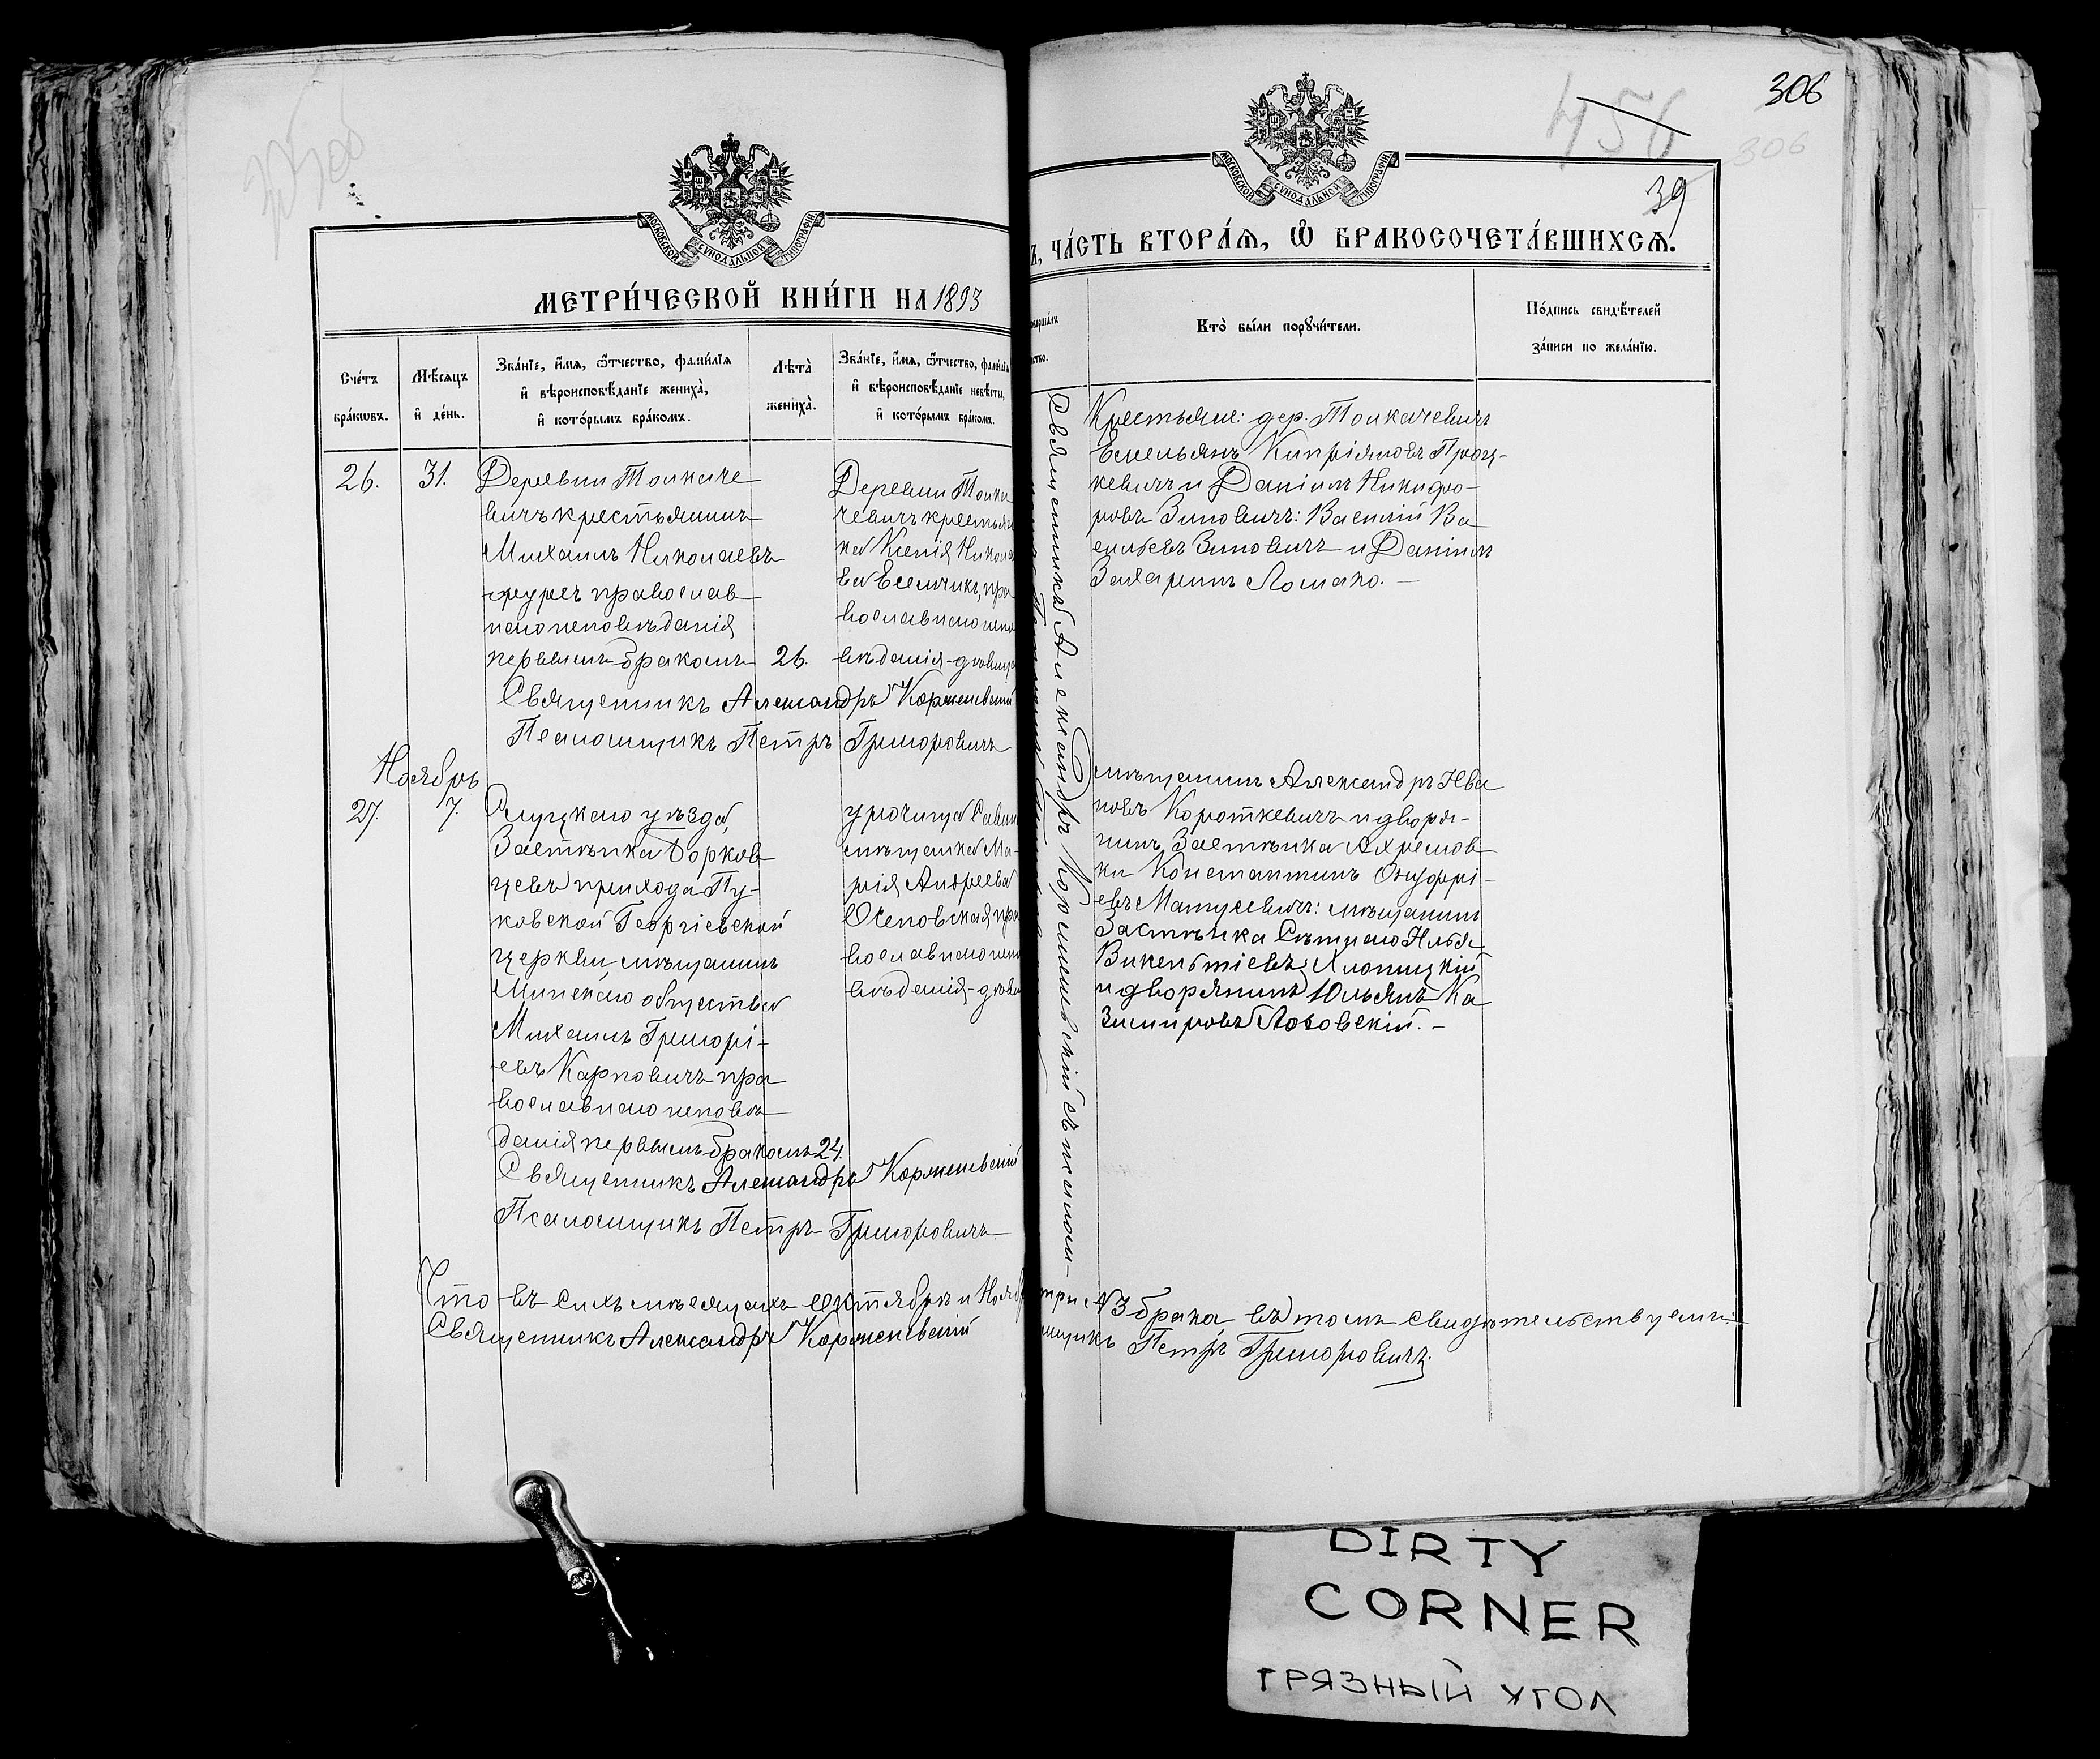 306
456
306
39
МОСКОВСКОЙ СУНОДАЛЬНОЙ ТИПОГРАФІИ
МЕТРИ́ЧЕСКОЙ КНИ́ГИ НА 1893
Сче́тъ
бра́ковъ.
Мѣ́сяцъ
и҆ де́нь.
Зва́нїе, и҆́мя, ѻ҆́тчество, фами́лїя
и҆ вѣроисповѣ́данїе жениха̀,
и҆ кото́рымъ бра́комъ.
Лѣта̀
жениха̀.
Зва́нїе, и҆́мя, ѻ҆́тчество, фами́лїя
и҆ вѣроисповѣ́данїе невѣ́сты,
и҆ кото́рымъ бра́комъ.
26.
31.
Деревни Толкаче
вичъ крестьянинъ
Михаилъ Николаевъ
православ
наго исповѣданія
первымъ бракомъ
26.
Деревни Толка
чевичъ крестьян
ка Ксенія Никола
ва Есьмчикъ, пра
вославнаго испо
вѣданія-дѣвица
Священникъ Александръ Корженевскій
Псаломщикъ Петръ Григоровичъ
Ноябрь
27.
7.
Слуцкаго уѣзда,
Застѣнка Борков
цевъ прихода Пу-
ковской Георгіевской
церкви мѣщанинъ
Минскаго общества
Михаилъ Григорі-
евъ Карповичъ пра
вославнаго исповѣ
данія первымъ бракомъ
24.
урочища
мѣщанка Ма-
рія Андреева
Осиповская пра
вославнаго испо
вѣданія-дѣви
Священникъ Александръ Корженевскій
Псаломщикъ Петръ Григоровичъ
Что въ сихъ мѣсяцахъ октябрѣ и Нояб
Священникъ Александръ Корженевскій
МОСКОВСКОЙ СУНОДАЛЬНОЙ ТИПОГРАФІИ
Ъ, ЧА́СТЬ ВТОРА́Я, Ѡ҆ БРАКОСОЧЕТА́ВШИХСЯ.
Кто̀ бы́ли поручи́тели.
По́дпись свидѣ́телей
за́писи по жела́нїю.
Священникъ Александръ Корженевскій съ псалом-
Крестьяне: дер. Толкачевичъ
Емельянъ Кипріяновъ Проц-
кевичъ и Даніилъ Никифо-
ровъ Зиновичъ: Василій Ва
сильевъ Зиновичъ и Даніилъ
Захаринъ Ломако. —
мѣщанинъ Александръ Ива
новъ Короткевичъ и дворя-
нинъ Застѣнка Ахремов
ки Константинъ Онуфрі-
евъ Матусевичъ: мѣщанинъ
Застѣнка Илья
Викентіевъ Хлопицкій
и дворянинъ Юльянъ Ка
зиміровъ Лозовскій. —
три, №3 брака, въ томъ свидѣтельствуемъ:
мщикъ Петръ Григоровичъ.
DIRTY
CORNER
ГРЯЗНЫЙ УГОЛ